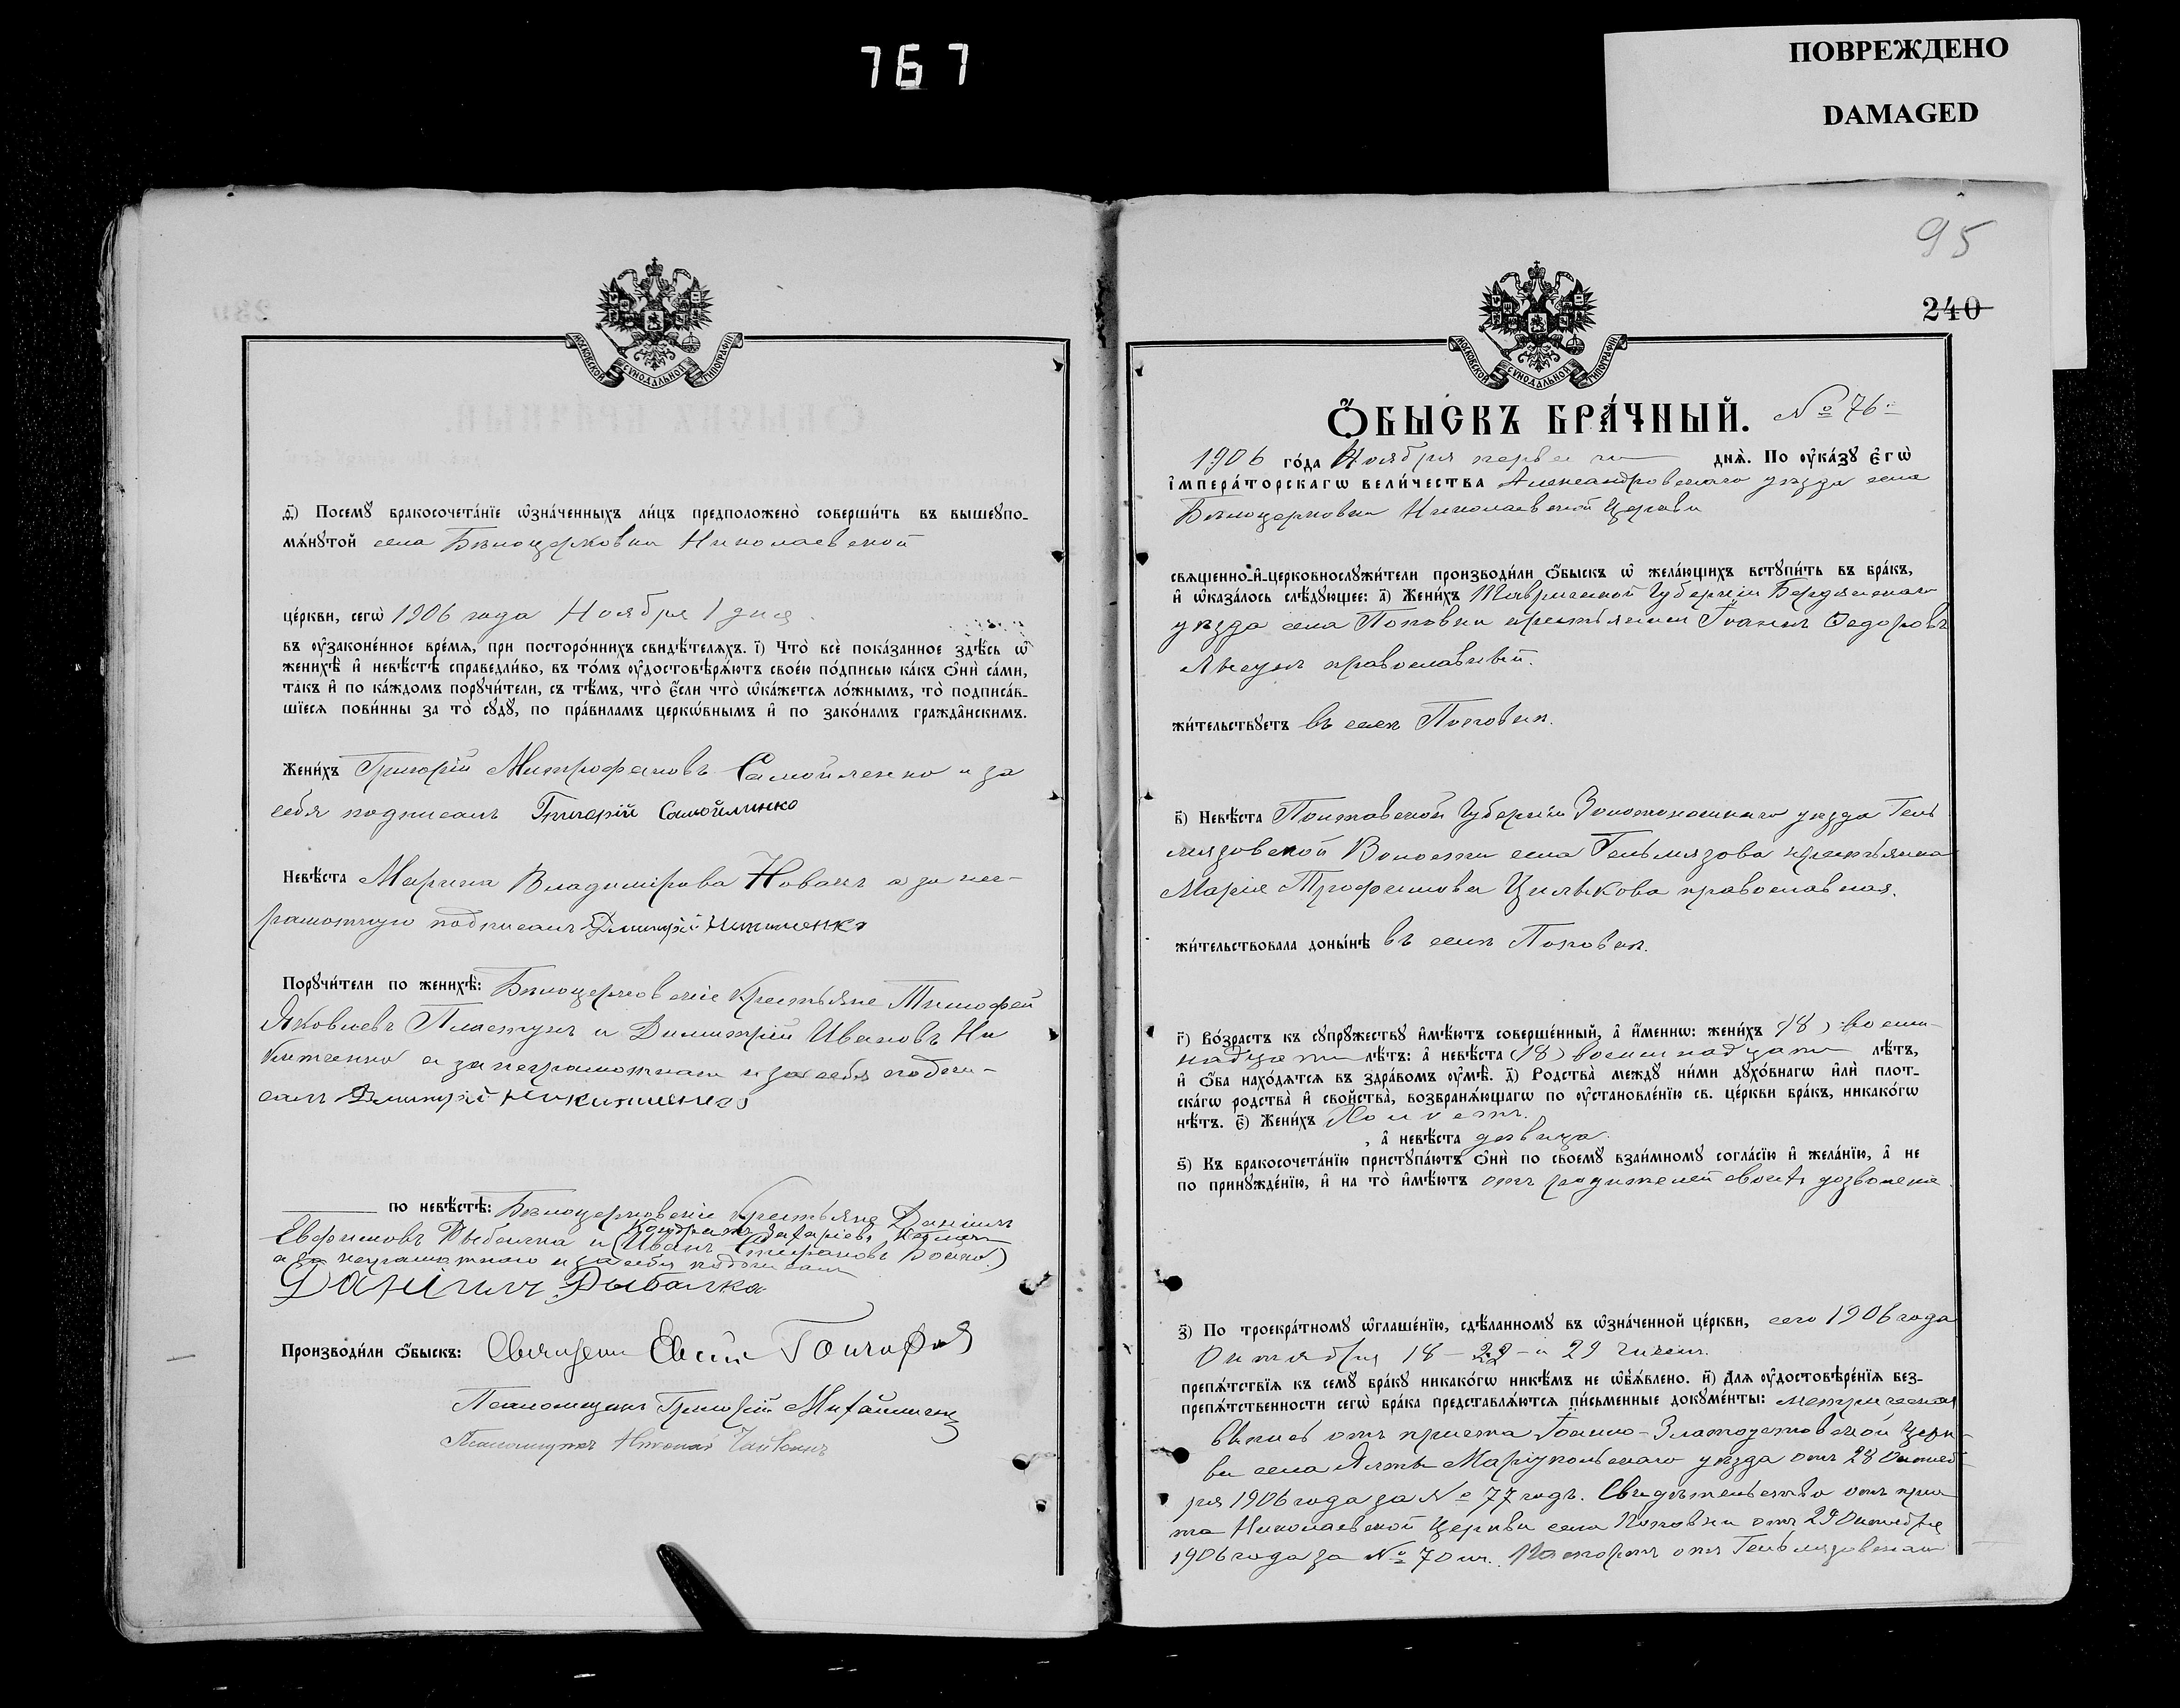 767
ПОВРЕЖДЕНО
DAMAGED
МОСКОВСКОЙ СѴНОДАЛЬНОЙ ТИПОГРАФІИ
ѳ҃) Посемꙋ бракосочета́нїе ѡ҆зна́ченныхъ ли́цъ предположено̀ соверши́ть въ вышеꙋпо-
мѧ́нꙋтой села Бѣлоцерковки Николаевской
це́ркви, сегѡ̀ 1906 года Ноября 1 дня
въ ᲂу҆зако́ненное вре́мѧ, при посторо́ннихъ свидѣ́телѧхъ. і҃) Что̀ всѐ пока́занное здѣ́сь ѡ҆
женихѣ̀ и҆ невѣ́стѣ справедли́во, въ то́мъ ᲂу҆достовѣрѧ́ютъ своє́ю по́дписью ка́къ ѻ҆нѝ са́ми,
та́къ и҆ по ка́ждомъ порꙋчи́тели, съ тѣ́мъ, что̀ є҆́сли что̀ ѡ҆ка́жетсѧ ло́жнымъ, то̀ подписа́в-
шїесѧ пови́нны за то̀ сꙋдꙋ̀, по пра́виламъ церкѡ́внымъ и҆ по зако́намъ гражда̑нскимъ.
Жени́хъ Григорій Митрофановъ Самойленко и за
себя подписалъ Григорій Самойлинко
Невѣ́ста Марина Владимірова Новакъ а за нег-
рамотную подписалъ Дмитрій Никитченко
Порꙋчи́тели по женихѣ̀: Бѣлоцерковскіе Крестьяне Тимофей
Яковлевъ Пластунъ и Димитрій Ивановъ Ни
китченко а за неграмотнаго и за себя подпи-
салъ Дмитрій Никитченко
по невѣ́стѣ: Бѣлоцерковскіе Крестьяне Даніилъ
Евфимовъ Рыбалка и Кондратъ Захаріевъ (Иванъ Стефановъ Бойко)
а за неграмотнаго и за себя подписалъ
Даніилъ Рыбалка
Производи́ли ѻ҆́быскъ: Священникъ Гончаровъ
Псаломщикъ Григорій
Псаломщикъ Николай
95
240
МОСКОВСКОЙ СѴНОДАЛЬНОЙ ТИПОГРАФІИ
Ѻ҆́БЫСКЪ БРА́ЧНЫЙ. № 76й
1906 го́да Ноября перваго днѧ̀. По ᲂу҆ка́зꙋ Є҆гѡ̀
і҆мпера́торскагѡ вели́чества Александровскаго уѣзда села
Бѣлоцерковки Николаевской Церкви
свѧще́нно-и҆-церковнослꙋжи́тели производи́ли ѻ҆́быскъ ѡ҆ жела́ющихъ встꙋпи́ть въ бра́къ,
и҆ ѡ҆каза́лось слѣ́дꙋющее: а҃) Жени́хъ Таврической Губерніи Бердянскаго
уѣзда села Поповки крестьянинъ Іоаннъ Ѳедоровъ
православный.
жи́тельствꙋетъ въ селѣ Поповкѣ.
в҃) Невѣ́ста Полтавской Губерніи Золотоношскаго уѣзда Гель
мязовской Волости села Гельмязова крестьянка
Марія Трофимова Цилькова православная.
жи́тельствовала доны́нѣ въ селѣ Поповкѣ.
г҃) Во́зрастъ къ сꙋпрꙋ́жествꙋ и҆мѣ́ютъ соверше́нный, а҆ и҆́меннѡ: жени́хъ (18) восем-
надцати лѣ́тъ: а҆ невѣ́ста (18) восемнадцати лѣ́тъ,
и҆ ѻ҆́ба нахо́дѧтсѧ въ здра́вомъ ᲂу҆мѣ̀. д҃) Родства̀ междꙋ̀ ни́ми дꙋхо́внагѡ и҆лѝ плот-
ска́гѡ родства̀ и҆ сво́йства, возбранѧ́ющагѡ по ᲂу҆становле́нїю св. це́ркви бра́къ, никако́гѡ
нѣ́тъ. є҃) Жени́хъ Холостъ.
, а҆ невѣ́ста дѣвица.
ѕ҃) Къ бракосочета́нїю пристꙋпа́ютъ ѻ҆нѝ по своемꙋ̀ взаи́мномꙋ согла́сїю и҆ жела́нїю, а҆ не
по принꙋжде́нїю, и҆ на то̀ и҆мѣ́ютъ отъ родителей своихъ дозволеніе.
з҃) По троекра́тномꙋ ѡ҆глаше́нїю, сдѣ́ланномꙋ въ ѡ҆зна́ченной це́ркви, сего 1906 года
Октября 18 – 22 – и 29 чиселъ.
препѧ́тствїѧ къ семꙋ̀ бра́кꙋ никако́гѡ никѣ́мъ не ѡ҆б̾ѧ́влено. и҃) Для ᲂу҆достовѣре́нїѧ без-
препѧ́тственности сегѡ̀ бра́ка представлѧ́ютсѧ пи́сьменные докꙋме́нты: метрическая
выпись отъ причта Іоанно-Златоустовской Церк-
ви села Ялты Маріупольскаго уѣзда отъ 28 Октяб-
ря 1906 года за № 77 Свидѣтельство отъ прич
та Николаевской Церкви села Поповки отъ 29 Октября
1906 года за № 70 Паспортъ отъ Гельмязовскаго